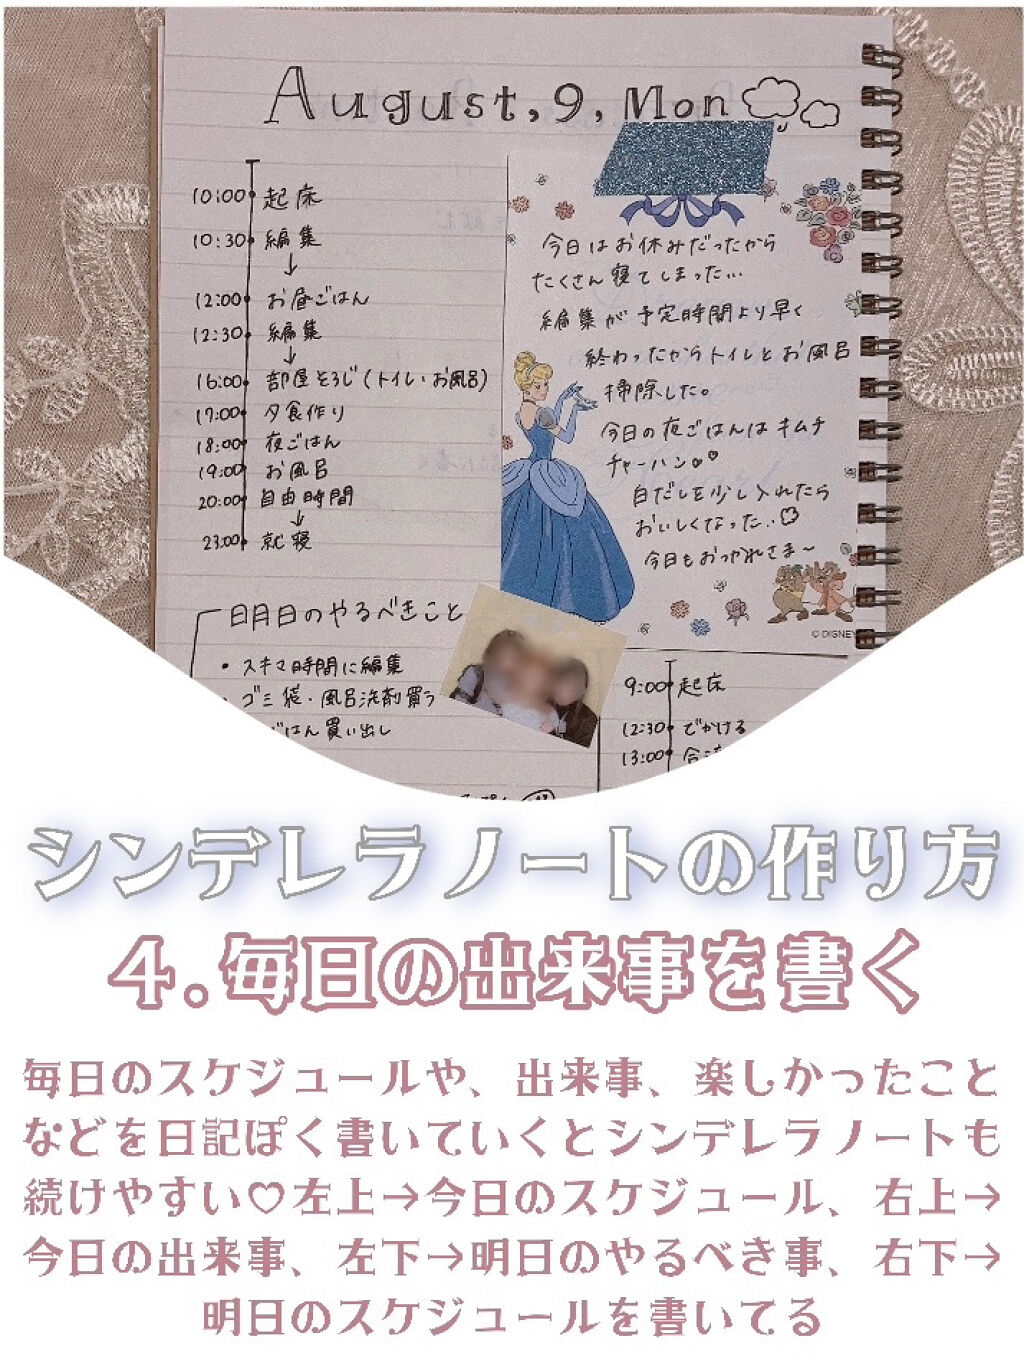 August, 9, Mon
10:00 起床
10:30 編集
↓
12:00 お昼ごはん
12:30 編集
↓
16:00 部屋そうじ(トイレ・お風呂)
17:00 夕食作り
18:00 夜ごはん
19:00 お風呂
20:00 自由時間
↓
23:00 就寝
今日はお休みだったから
たくさん寝てしまった…
編集が予定時間より早く
終わったからトイレとお風呂
掃除した。
今日の夜ごはんはキムチ
チャーハン♡♡
白だしを少し入れたら
おいしくなった..
今日もおつかれさま〜
© DISNEY
明日のやるべきこと
・スキマ時間に編集
・ゴミ袋・風呂洗剤買う
ごはん買い出し
9:00 起床
12:30 でかける
13:00
シンデレラノートの作り方
4.毎日の出来事を書く
毎日のスケジュールや、出来事、楽しかったこと
などを日記ぽく書いていくとシンデレラノートも
続けやすい♡左上→今日のスケジュール、右上→
今日の出来事、左下→明日のやるべき事、右下→
明日のスケジュールを書いてる